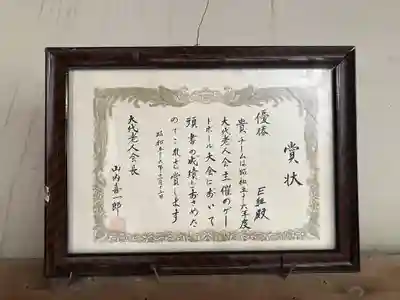 賞状
優勝
E組殿
貴チームは昭和五十六年度
大代老人会主催のゲー
トボール大会において
頭書の成績をおさめた
のでこれを賞します
昭和五十六年十一月十二日
大代老人会長
山内喜一郎